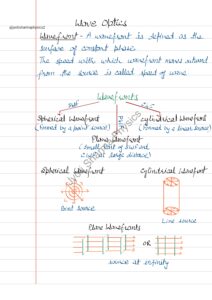 Wave Optics
Wavefront - A wavefront is defined as the
surface of constant phase.
The speed with which wavefront moves outward
from the source is called speed of wave
Wavefronts
Spherical Wavefront
(formed by a point source)
Cylindrical Wavefront
(formed by a linear source)
Plane Wavefront
(small part of
at large distance)
Spherical Wavefront
Cylindrical Wavefront
Point source
Line source
Plane Wavefronts
OR
source at infinity